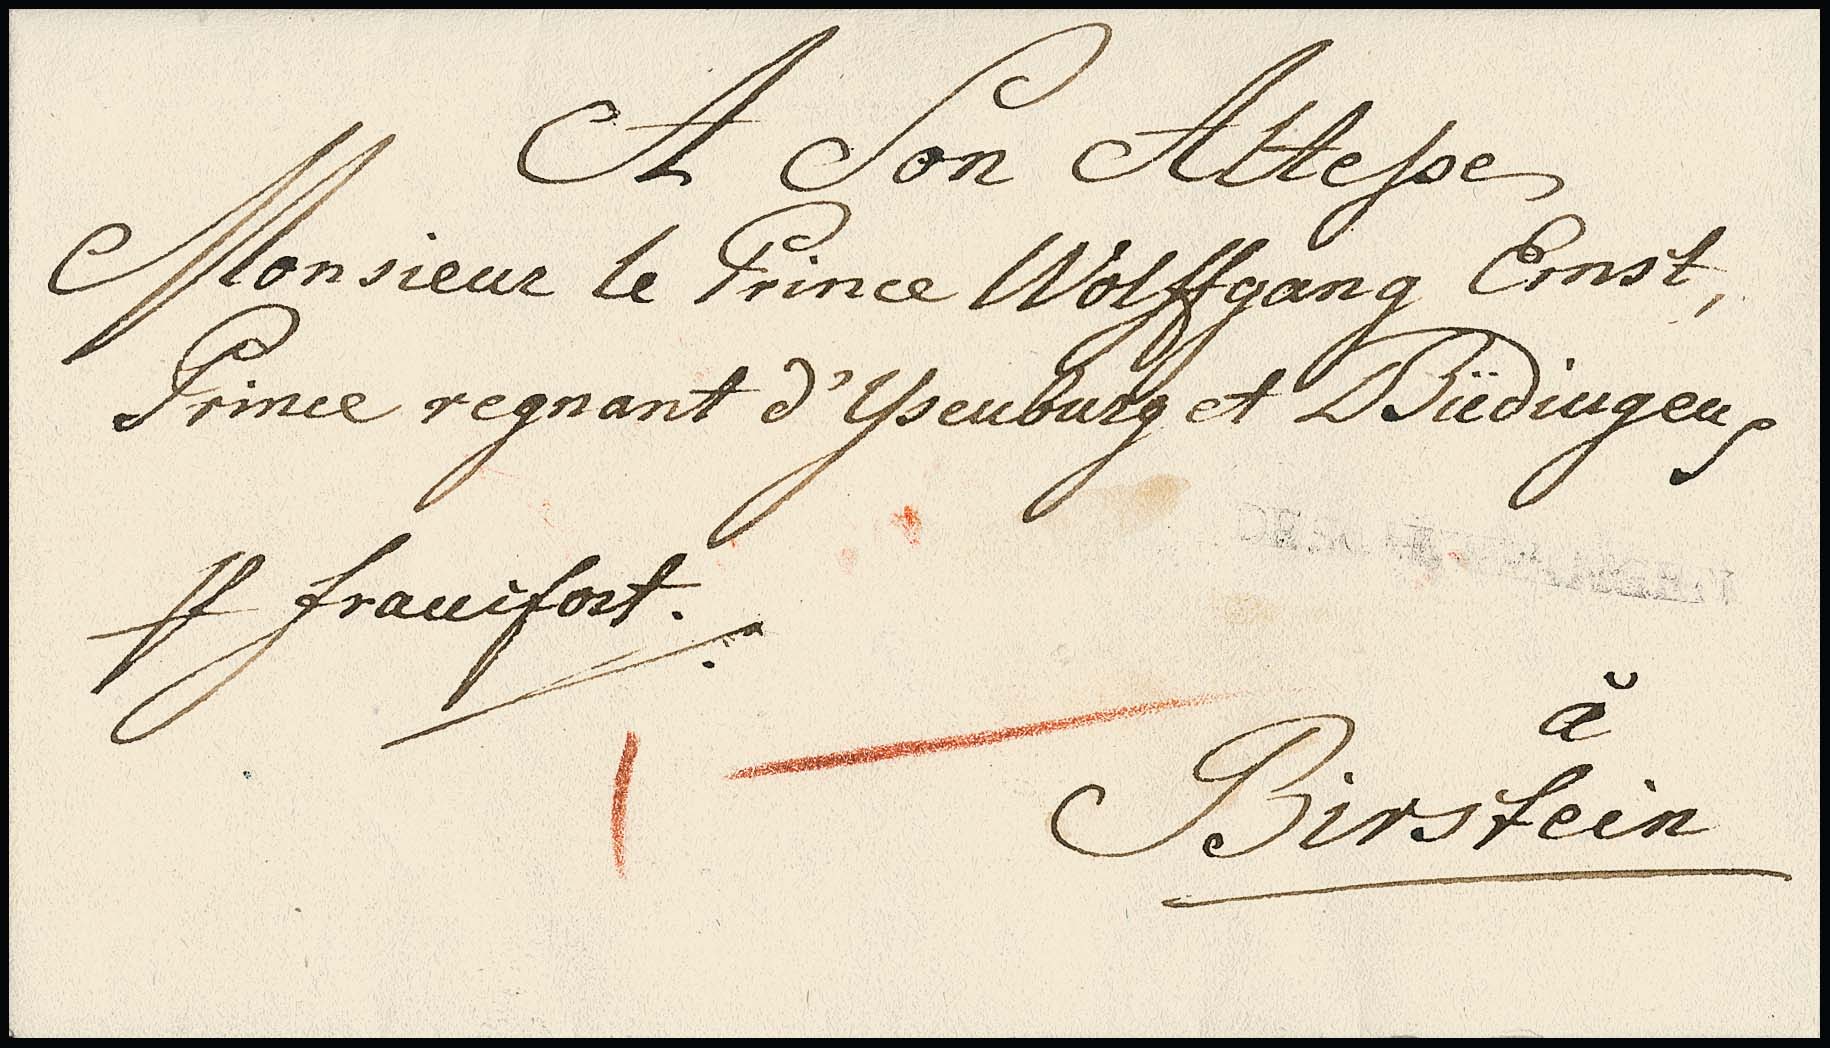 A Son Altesse
Monsieur le Prince Wolffgang Ernst,
Prince regnant d'Ysenburg et Büdingen,
francfort.
à
Birstein